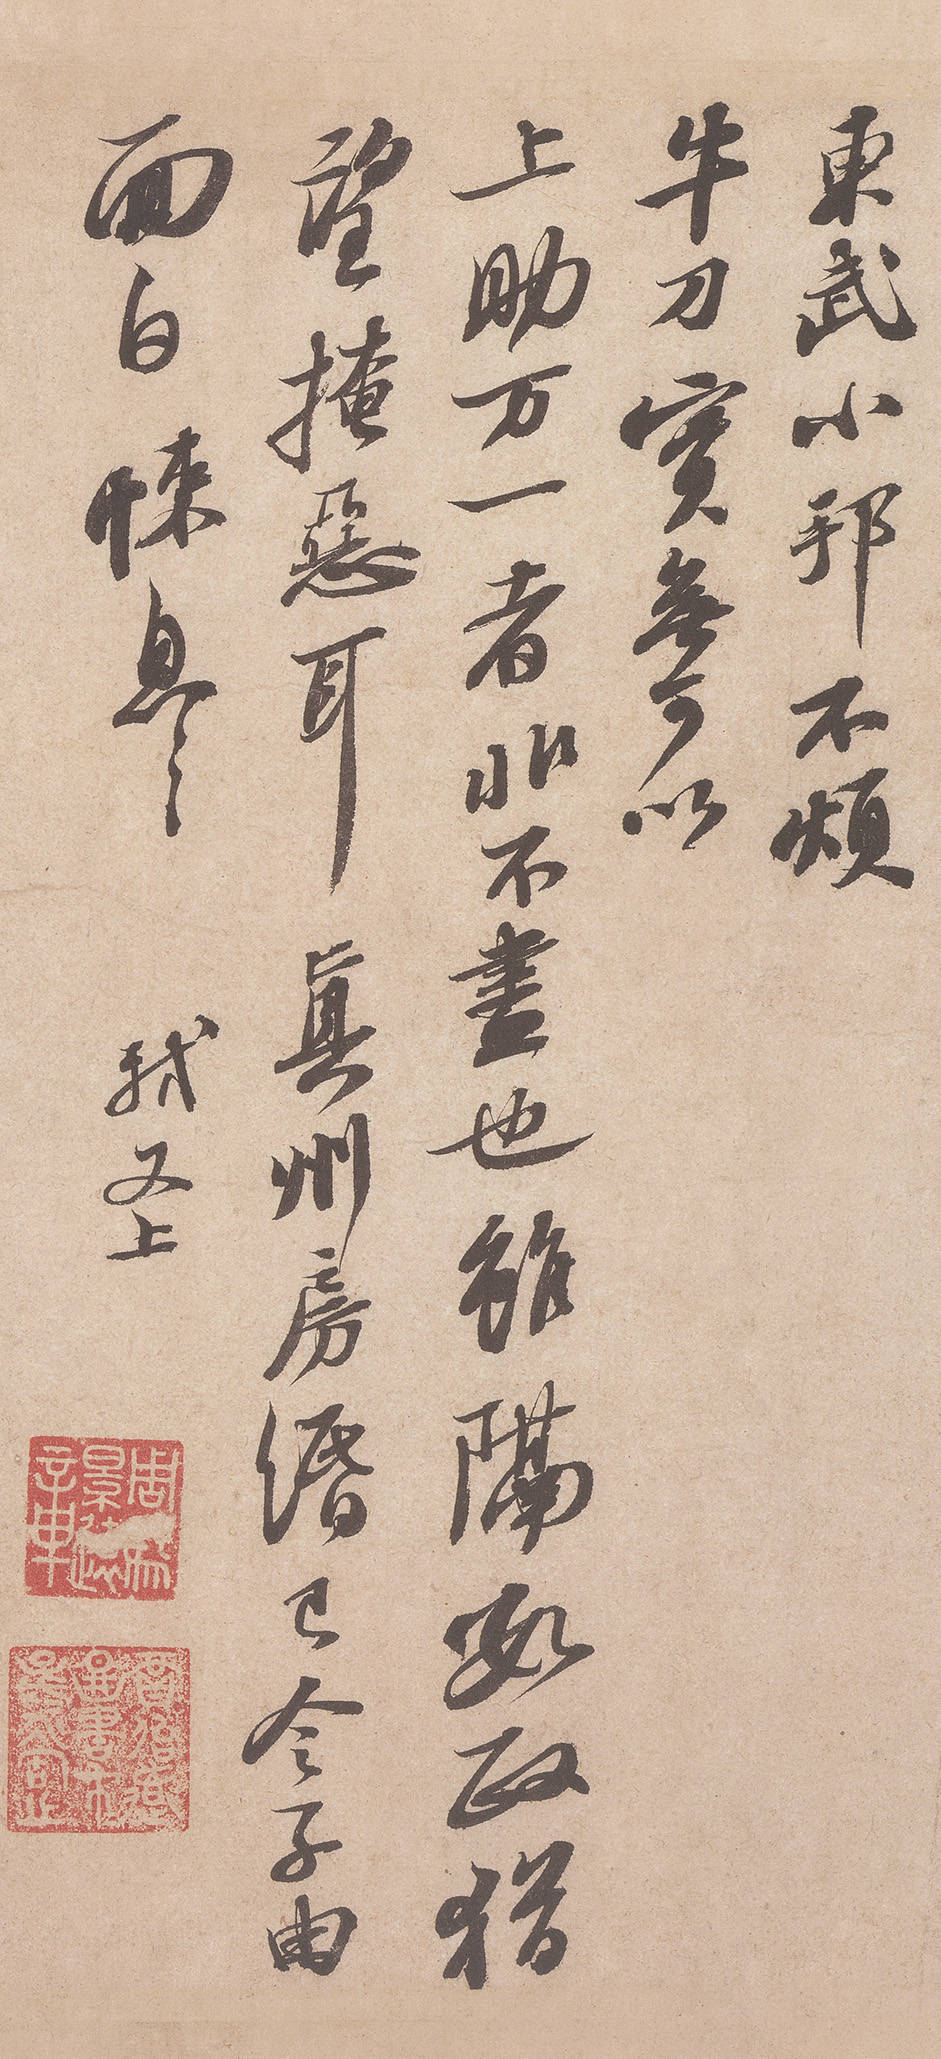 東武小邦不煩
牛刀實無可以
上助万一者非不盡也雖隔數政猶
望掩惡耳真州房緡已令子由
面白悚息〻軾又上